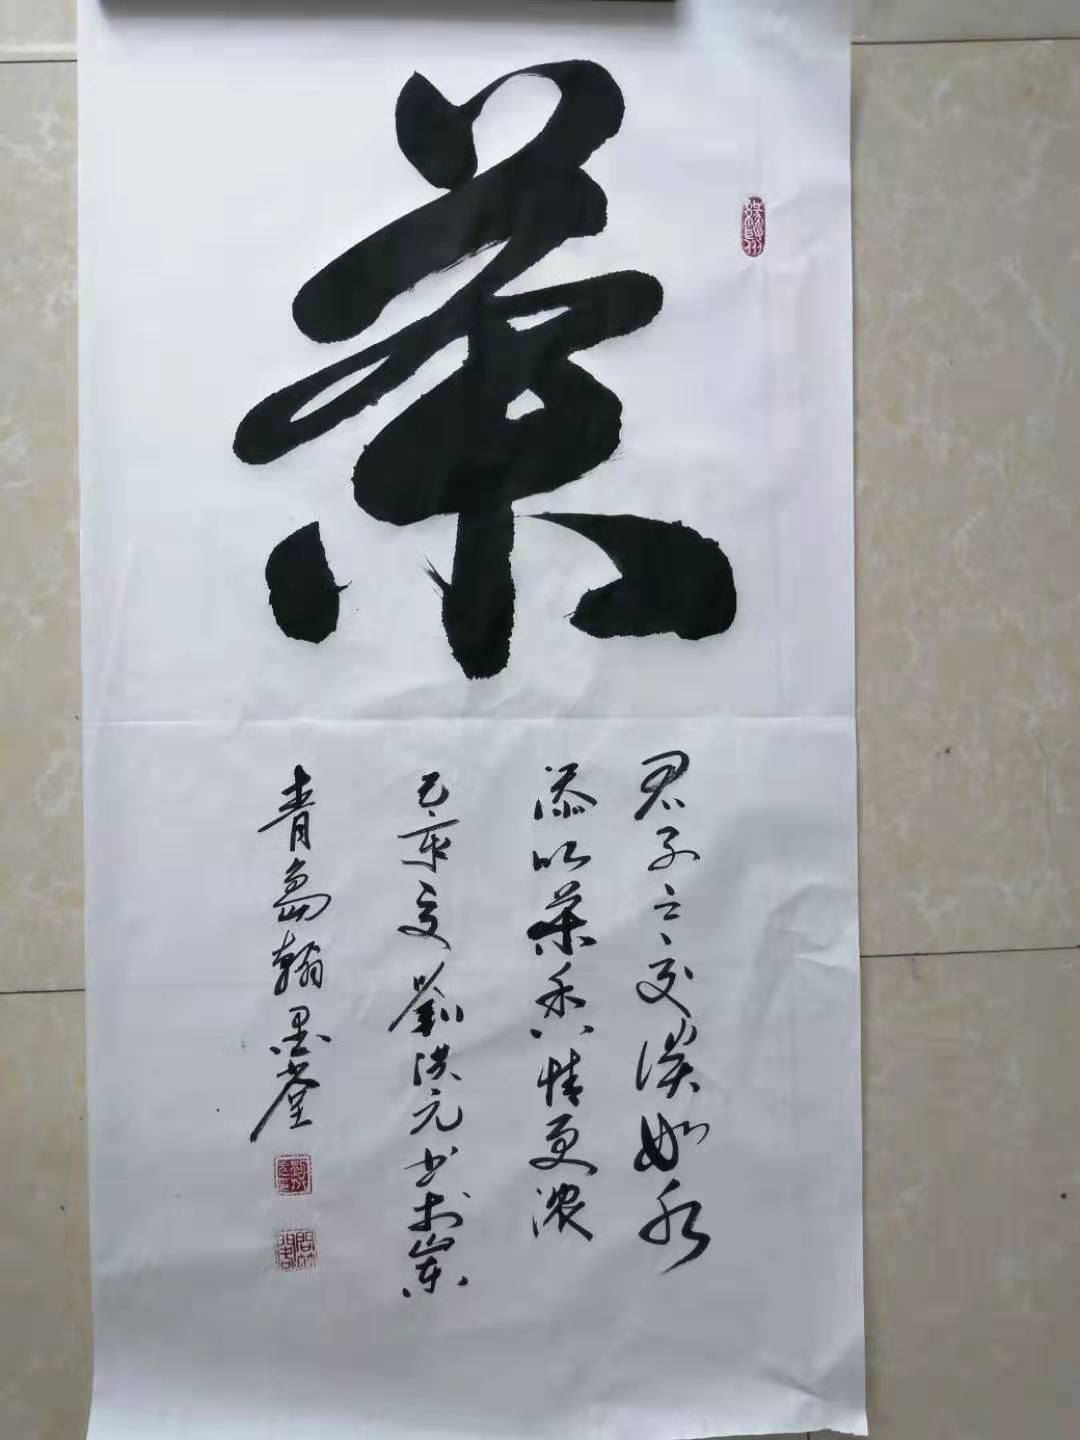 茶
君子之交淡如水
添以茶香情更浓
己亥夏刘洪元书於崇
青岛翰墨堂